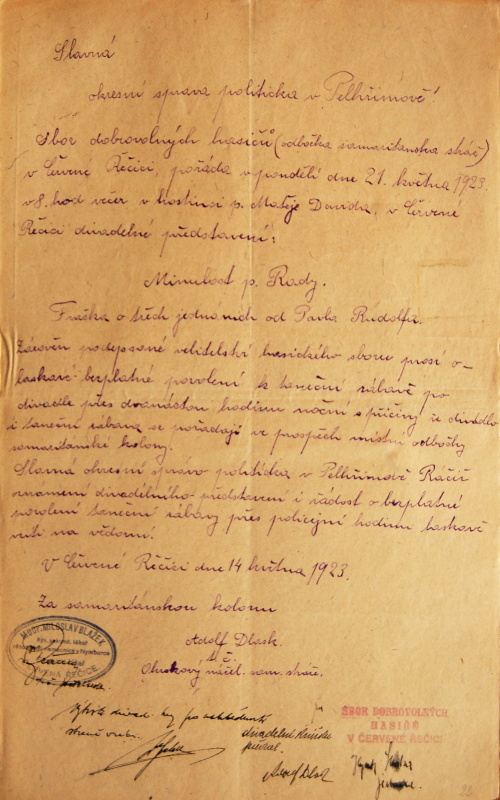 Slavná
okresní sprava politicka v Pelhřimově
Sbor dobrovolných hasičů (odbočka samaritanska stráč)
v Červené Řečici, pořáda v pondělí dne 21. května 1923.
v 8. hod večer v hostinci p. Matěje Davida, v Červené
Řečici divadelné představení:
Minulost p. Rady.
Fraška o třech jednáních od Pavla Rudolfa.
Zároveň podepsané velitelství hasického sboru prosí o
laskavé bezplatné povolení k taneční zábavě po
divadle přes dvanáctou hodinu noční s příčiny že divadlo
i taneční zábava se pořádají ve prospěch místní odbočky
samaritanské kolony.
Slavná okresní spravo politicka v Pelhřimově Ráčíž
oznámení divadelního představení i žádost o bezplatné
povolení taneční zábavy přes policejní hodinu laskavě
vzíti na vědomí.
V Červené Řečici dne 14 května 1923.
Za samaritánskou kolonu
Adolf Dlask.
t. č.
Okrskový náčel. sam. stráže.
MUDr. MILOSLAV BLAŽEK
ČERVENÁ ŘEČICE
vrátit divad. hry po
divadelné
Adolf Dlask
SBOR DOBROVOLNÝCH
HASIČŮ
V ČERVENÉ ŘEČICI